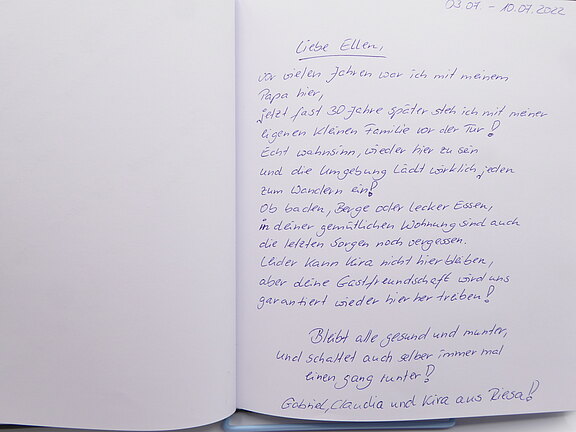 03.07. - 10.07.2022
Liebe Ellen,
vor vielen Jahren war ich mit meinem
Papa hier,
jetzt fast 30 Jahre später steh ich mit meiner
eigenen kleinen Familie vor der Tür!
Echt wahnsinn, wieder hier zu sein
und die Umgebung lädt wirklich jeden
zum Wandern ein!
Ob baden, Berge oder lecker Essen,
in deiner gemütlichen Wohnung sind auch
die letzten Sorgen noch vergessen.
Leider kann Kira nicht hierbleiben,
aber deine Gastfreundschaft wird uns
garantiert wieder hier her treiben!
Bleibt alle gesund und munter,
und schaltet auch selber immer mal
einen gang runter!
Gabriel, Claudia und Kira aus Riesa!